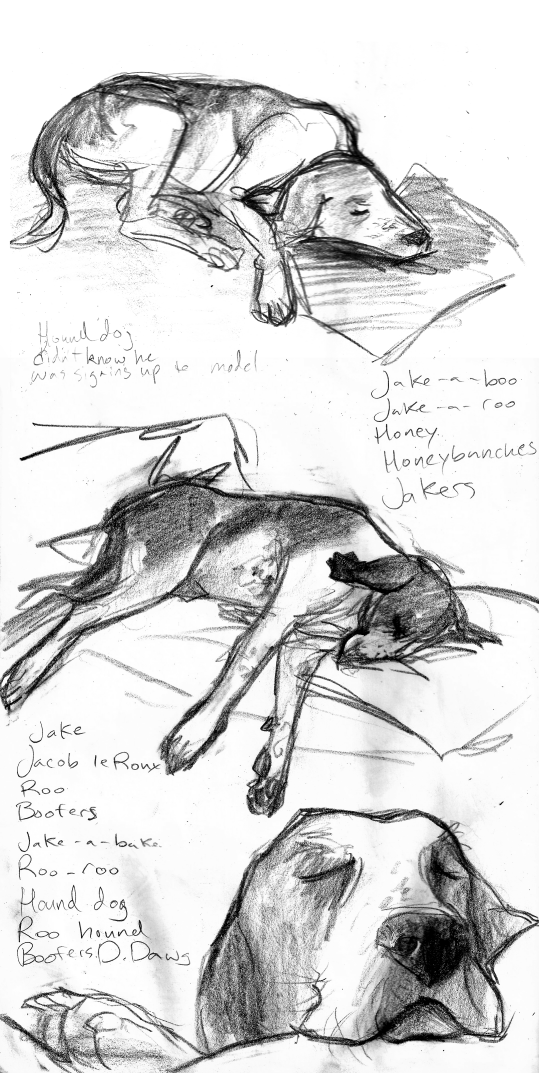 Hound dog
didn't know he
was signing up to model
Jake-a-boo
Jake-a-roo
Honey
Honeybunches
Jakers
Jake
Jacob leRoux
Roo
Boofers
Jake-a-bake
Roo-roo
Hound dog
Roo hound
Boofers.D.Dawg